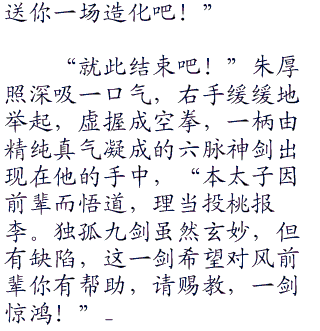 送你一场造化吧！”
“就此结束吧！”朱厚
照深吸一口气，右手缓缓地
举起，虚握成空拳，一柄由
精纯真气凝成的六脉神剑出
现在他的手中，“本太子因
前辈而悟道，理当投桃报
李。独孤九剑虽然玄妙，但
有缺陷，这一剑希望对风前
辈你有帮助，请赐教，一剑
惊鸿！”_